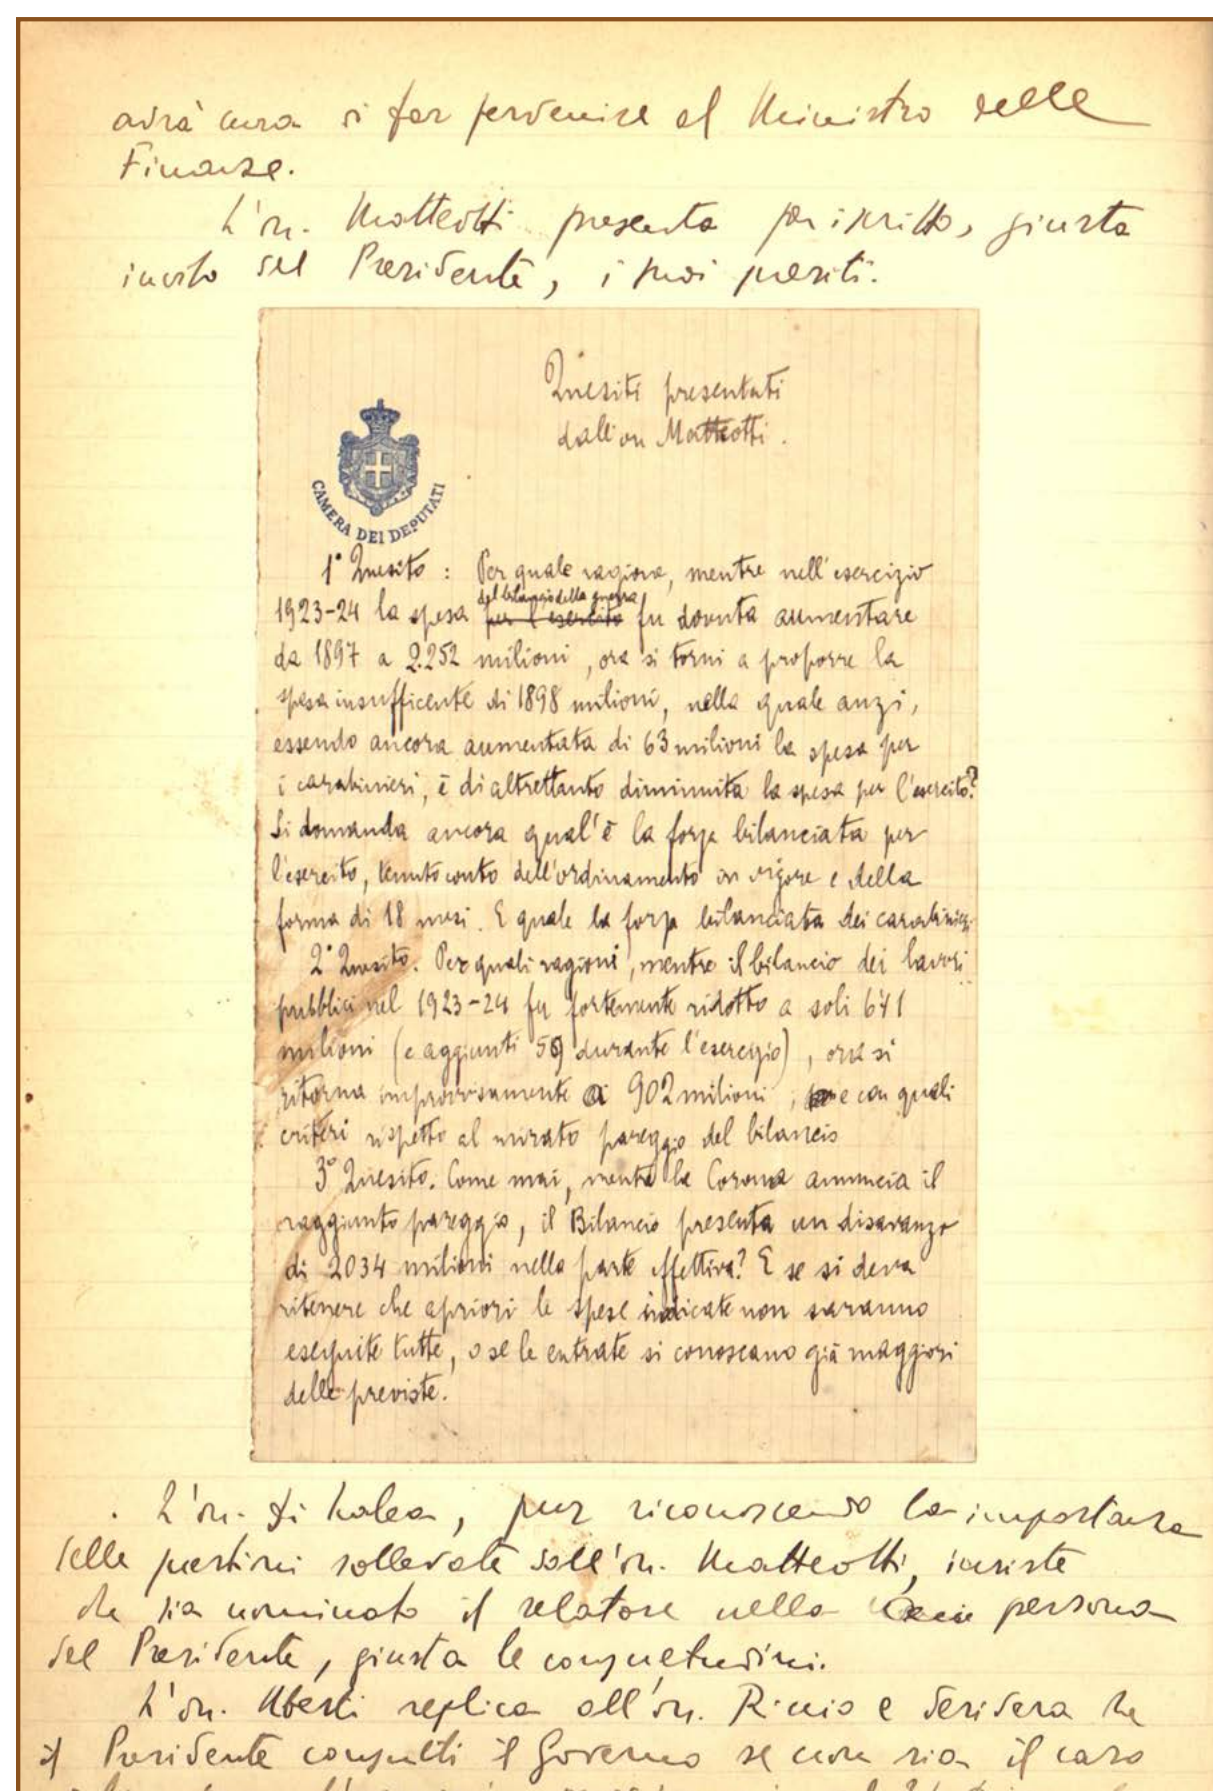 avrà cura di far pervenire al Ministro delle
Finanze.
L'on. Matteotti presenta per iscritto, giusta
invito del Presidente, i suoi quesiti.
Quesiti presentati
dall'on Matteotti.
CAMERA DEI DEPUTATI
1° Quesito: Per quale ragione, mentre nell'esercizio
del bilancio della guerra
1923-24 la spesa per l'esercito fu dovuta aumentare
da 1897 a 2.252 milioni, ora si torni a proporre la
spesa insufficente di 1898 milioni, nella quale anzi,
essendo ancora aumentata di 63 milioni la spesa per
i carabinieri, è di altrettanto diminuita la spesa per l'esercito?
Si domanda ancora qual'è la forza bilanciata per
l'esercito, tenuto conto dell'ordinamento in vigore e della
forma di 18 mesi. E quale la forza bilanciata dei carabinieri.
2° Quesito. Per quali ragioni, mentre il bilancio dei lavori
pubblici nel 1923-24 fu fortemente ridotto a soli 671
milioni (e aggiunti 59 durante l'esercizio), ora si
ritorna improvvisamente a 902 milioni, e con quali
criteri rispetto al mirato pareggio del bilancio
3° Quesito. Come mai, mentre la Corona annuncia il
raggiunto pareggio, il Bilancio presenta un disavanzo
di 2034 milioni nella parte effettiva? E se si deva
ritenere che apriori le spese indicate non saranno
eseguite tutte, o se le entrate si conoscano già maggiori
delle previste.
L'on. di Scalea, pur riconoscendo la importanza
delle questioni sollevate dall'on. Matteotti, insiste
che sia nominato il relatore nella persona
del Presidente, giusta le consuetudini.
L'on. Uberti replica all'on. Riccio e desidera che
il Presidente consulti il Governo se non sia il caso